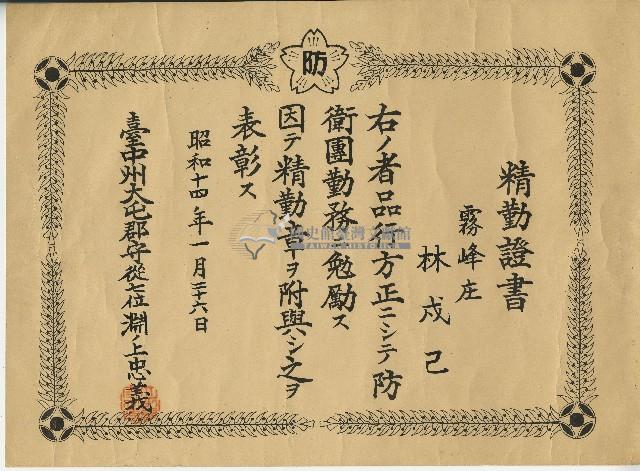 防
精勤證書
霧峰庄
林戍己
右ノ者品行方正ニシテ防
衛團勤務ニ勉勵ス
因テ精勤章ヲ附與シ之ヲ
表彰ス
昭和十四年一月二十六日
臺中州大屯郡守從七位淵ノ上忠義
國史館臺灣文獻館
TAIWAN HISTORICA